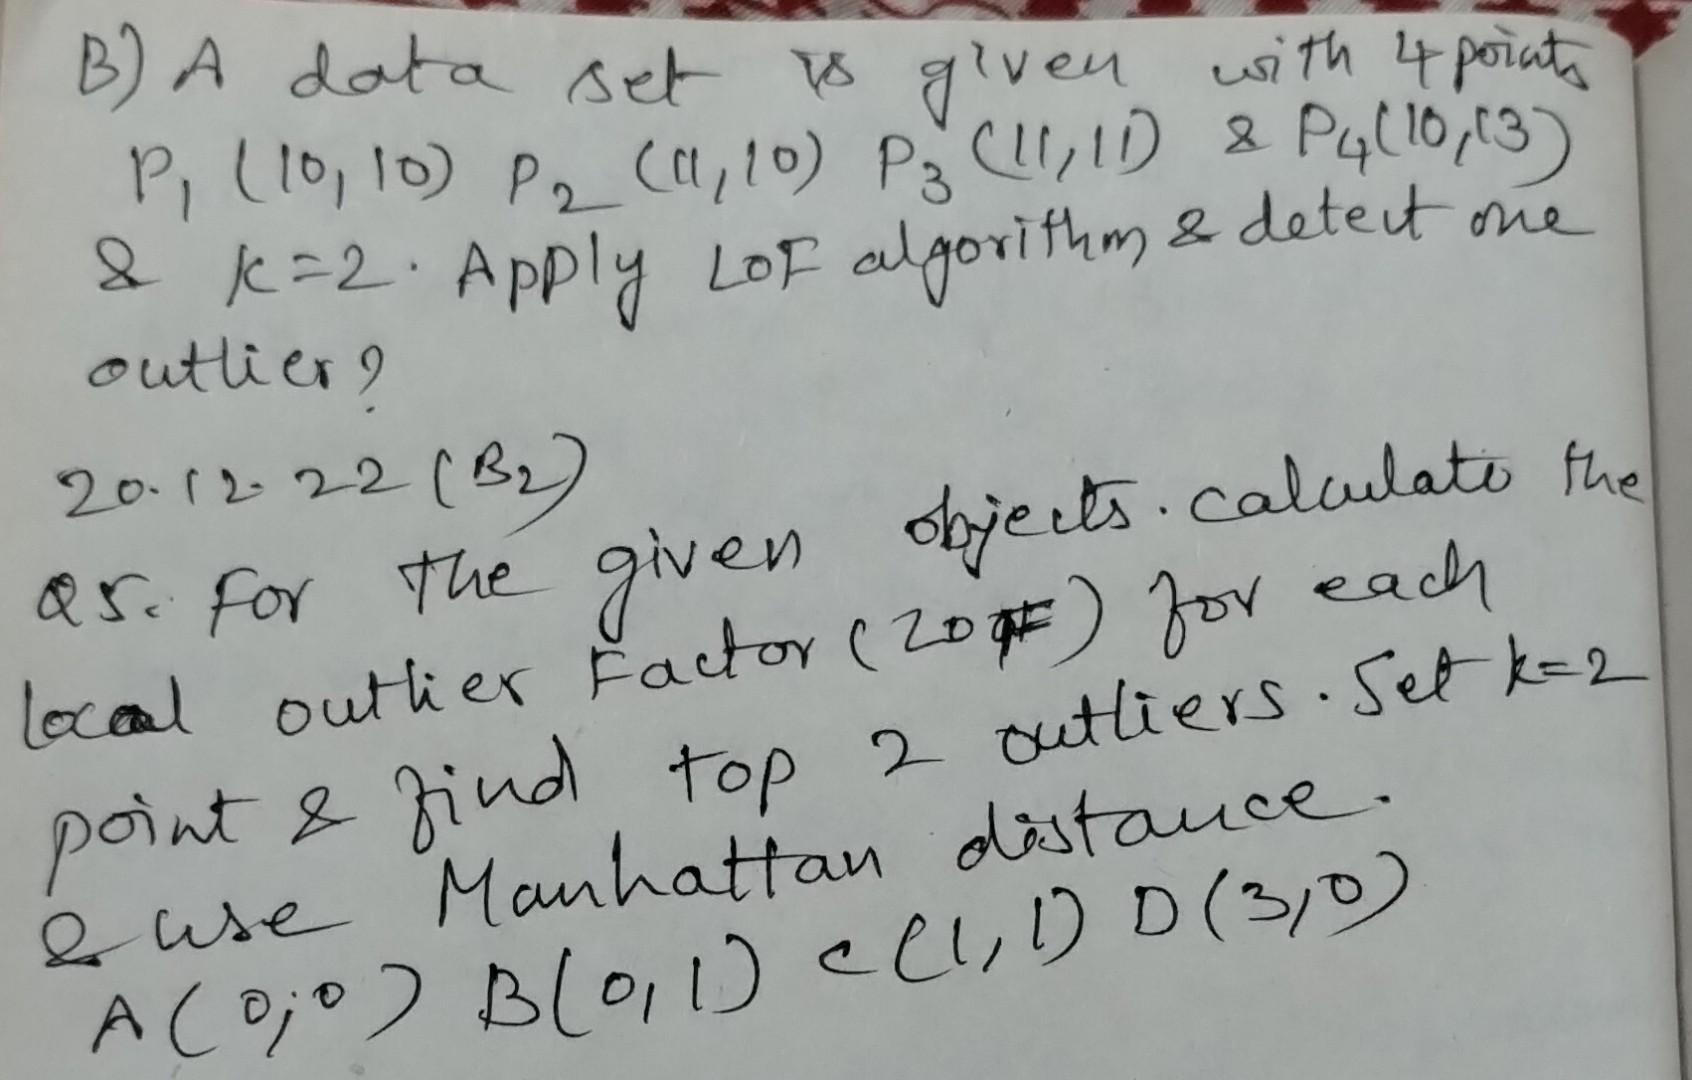 B) A data set is given with 4 points
P1 (10, 10) P2 (11, 10) P3 (11, 11) & P4(10,13)
& k=2. Apply LOF algorithm & detect one
outlier?
20.12.22 (B2)
Q5. For the given objects. calculate the
local outlier Factor (LOF) for each
point & find top 2 outliers. Set k=2
& use Manhattan distance.
A(0,0) B(0,1) C(1,1) D(3,0)